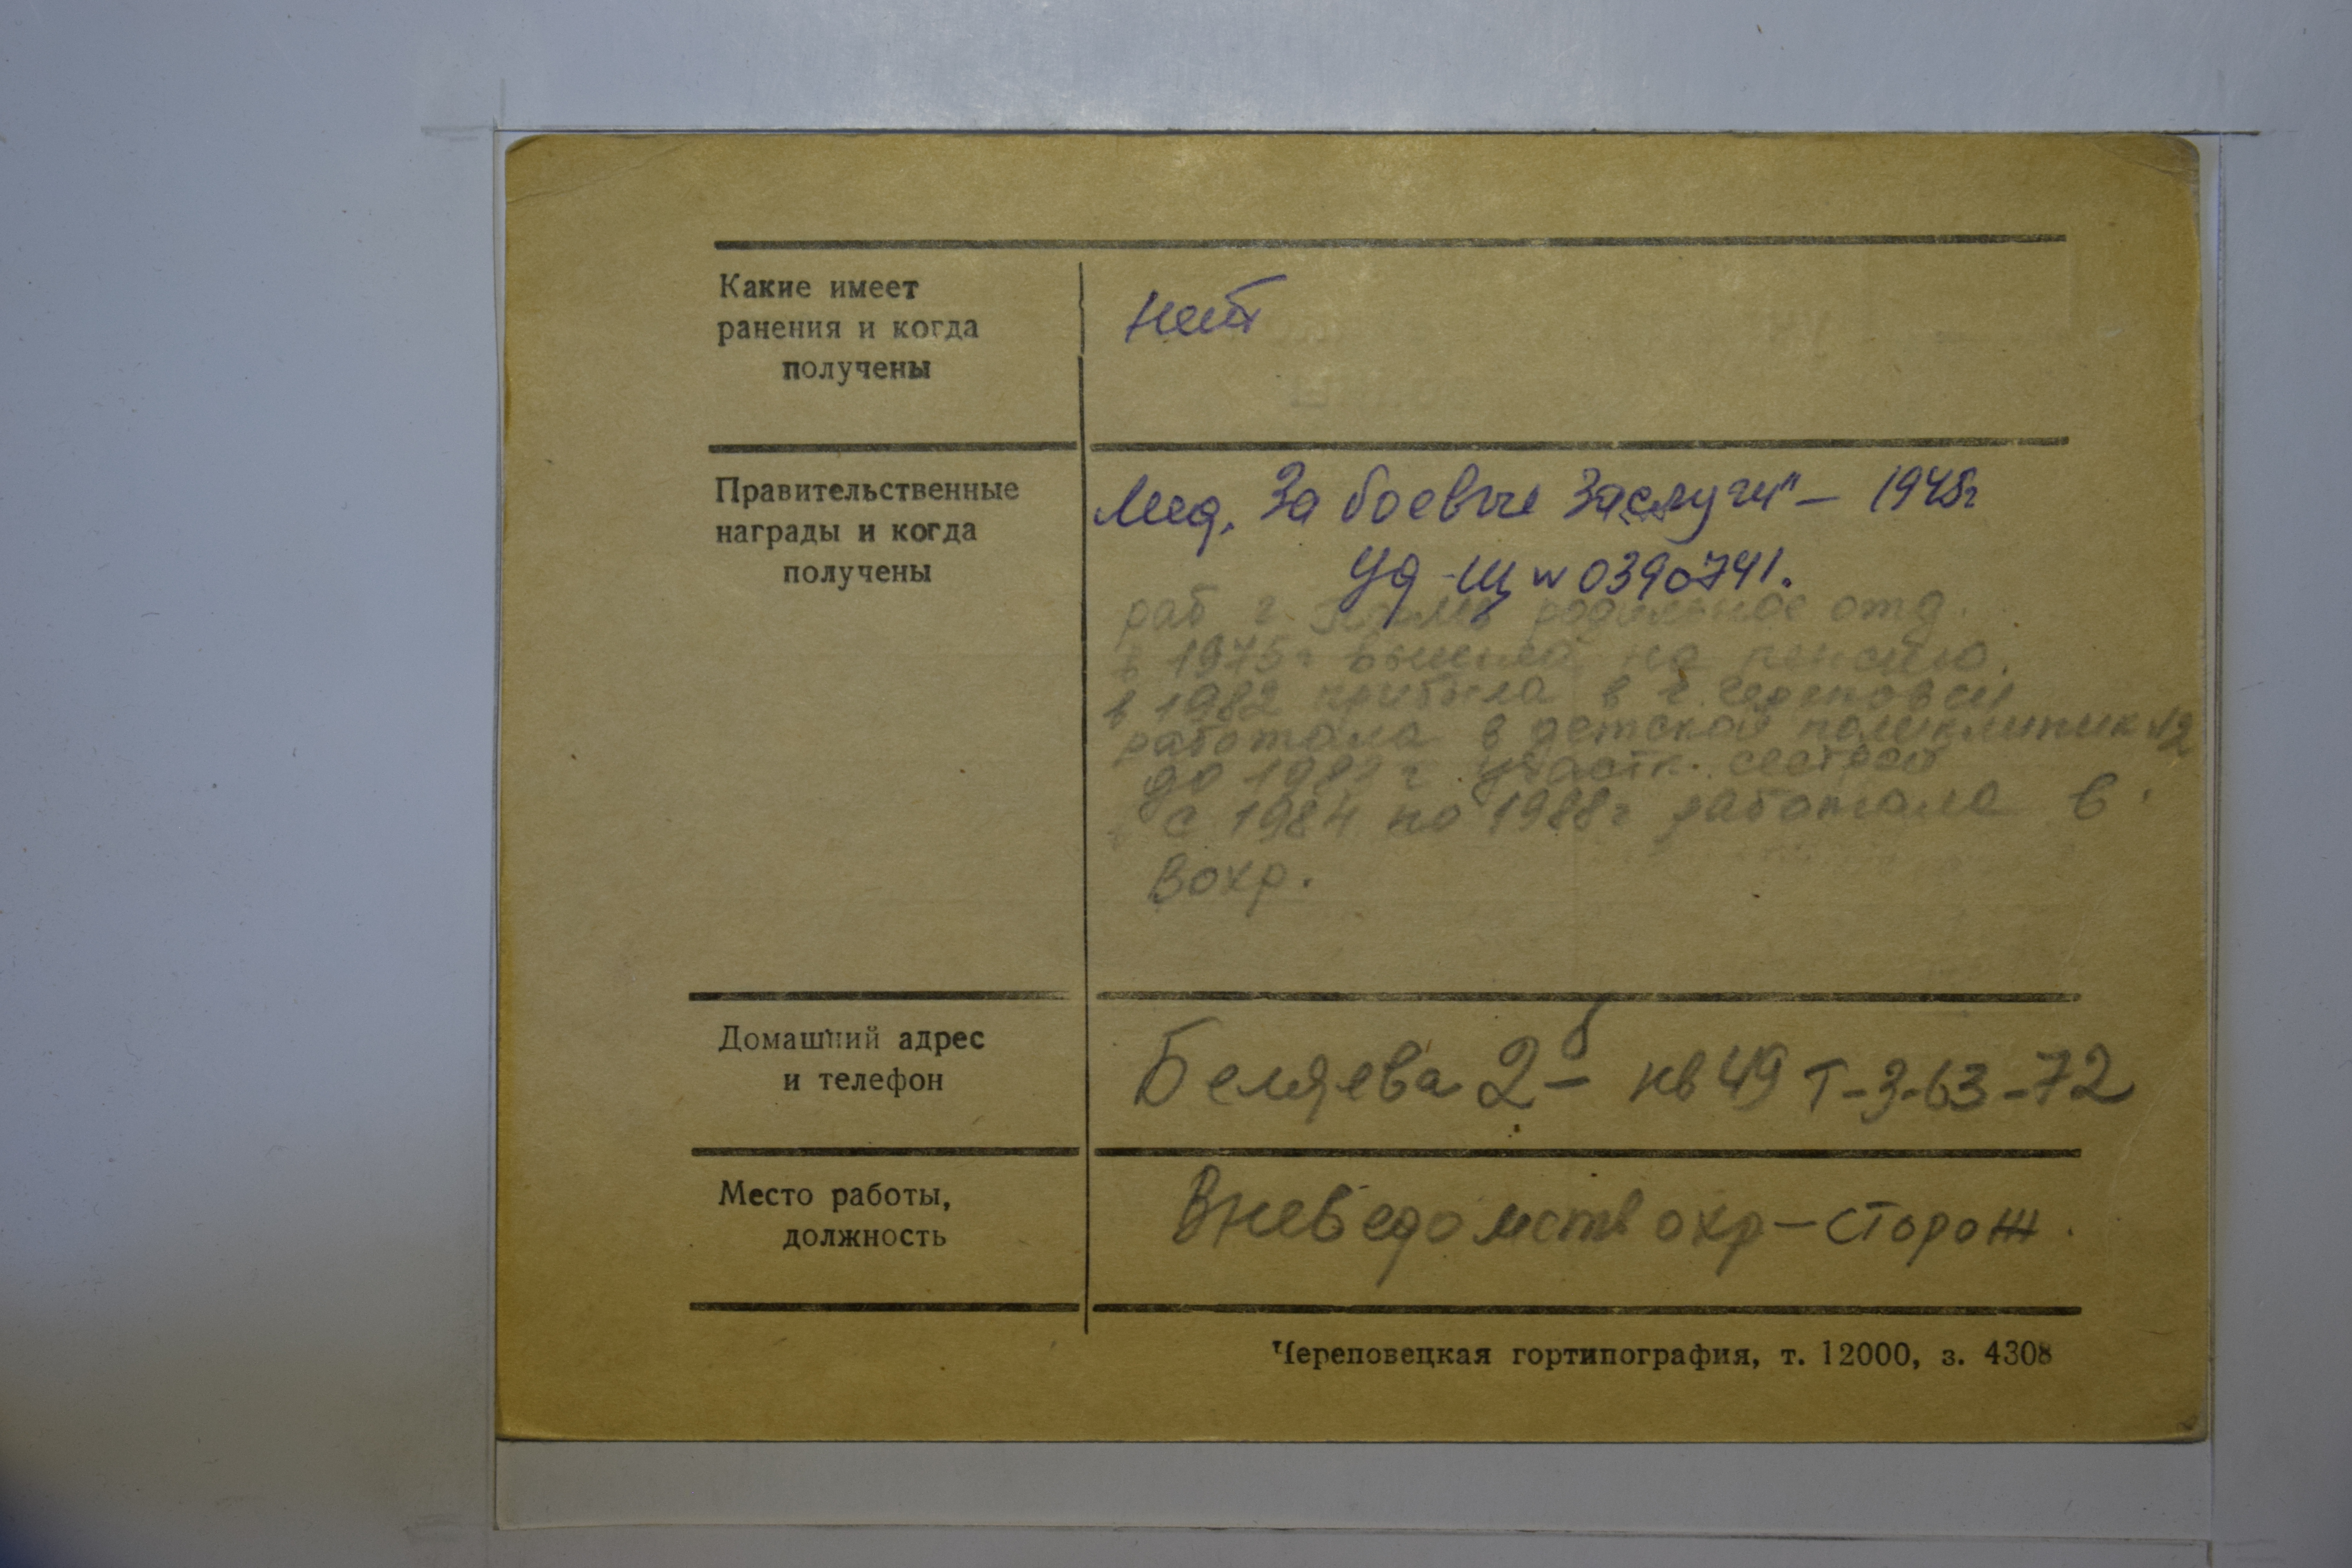 Какие имеет
ранения и когда
получены
нет
Правительственные
награды и когда
получены
Мед. За боевые заслуги" – 1945г
Уд-Щ № 0390741.
раб г. родильное отд.
в 1975г вышла на пенсию.
в 1982 прибыла в г. Череповец
работала в детской поликлиник №2
до участк. сестрой
с 1984 по 1988г работала в
Вохр.
Домашний адрес
и телефон
Беляева 2-б кв 49 Т-3-63-72
Место работы,
должность
Вневедомств охр – сторож.
Череповецкая гортипография, т. 12000, з. 4308